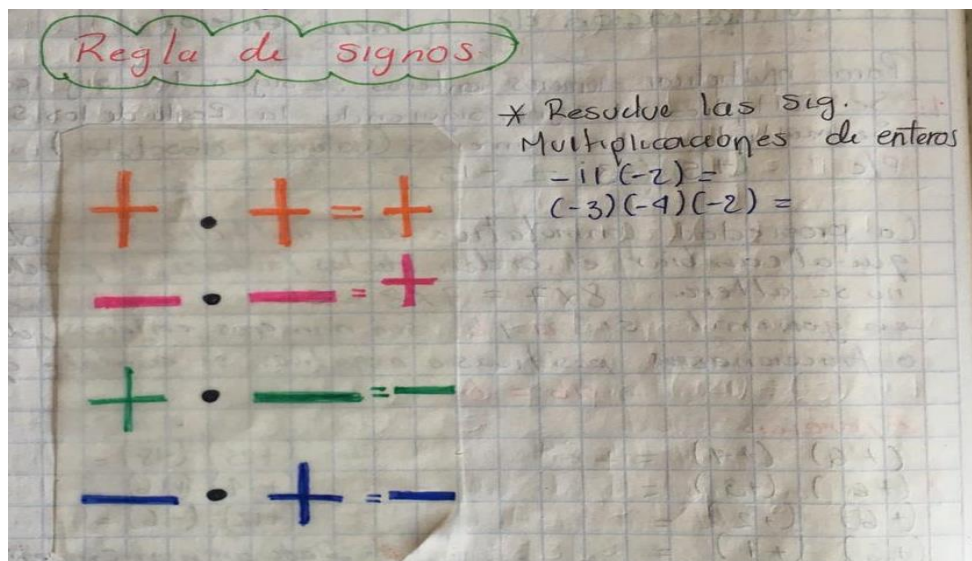 Regla de signos
+ • + = +
— • — = +
+ • — = —
— • + = —
* Resuelve las sig.
Multiplicaciones de enteros
-11 (-2) =
(-3)(-4)(-2) =